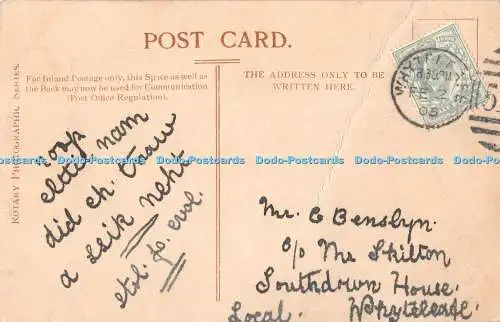 POST CARD.
For Inland Postage only, this Space as well as
the Back may now be used for Communication
(Post Office Regulation).
THE ADDRESS ONLY TO BE
WRITTEN HERE.
ROTARY PHOTOGRAPHIC SERIES.
roop
elttil nam
did eh. tnaw
a ssik neht
stol fo. evol.
Mr. E Benslyn.
c/o Mr Skilton
Southdown House.
Local. Whyteleafe.
WHYTELEAFE
05
Dodo-Postcards Dodo-Postcards Dodo-Postcards Dodo-Postcards Dodo-Postcards Dodo-Postcards